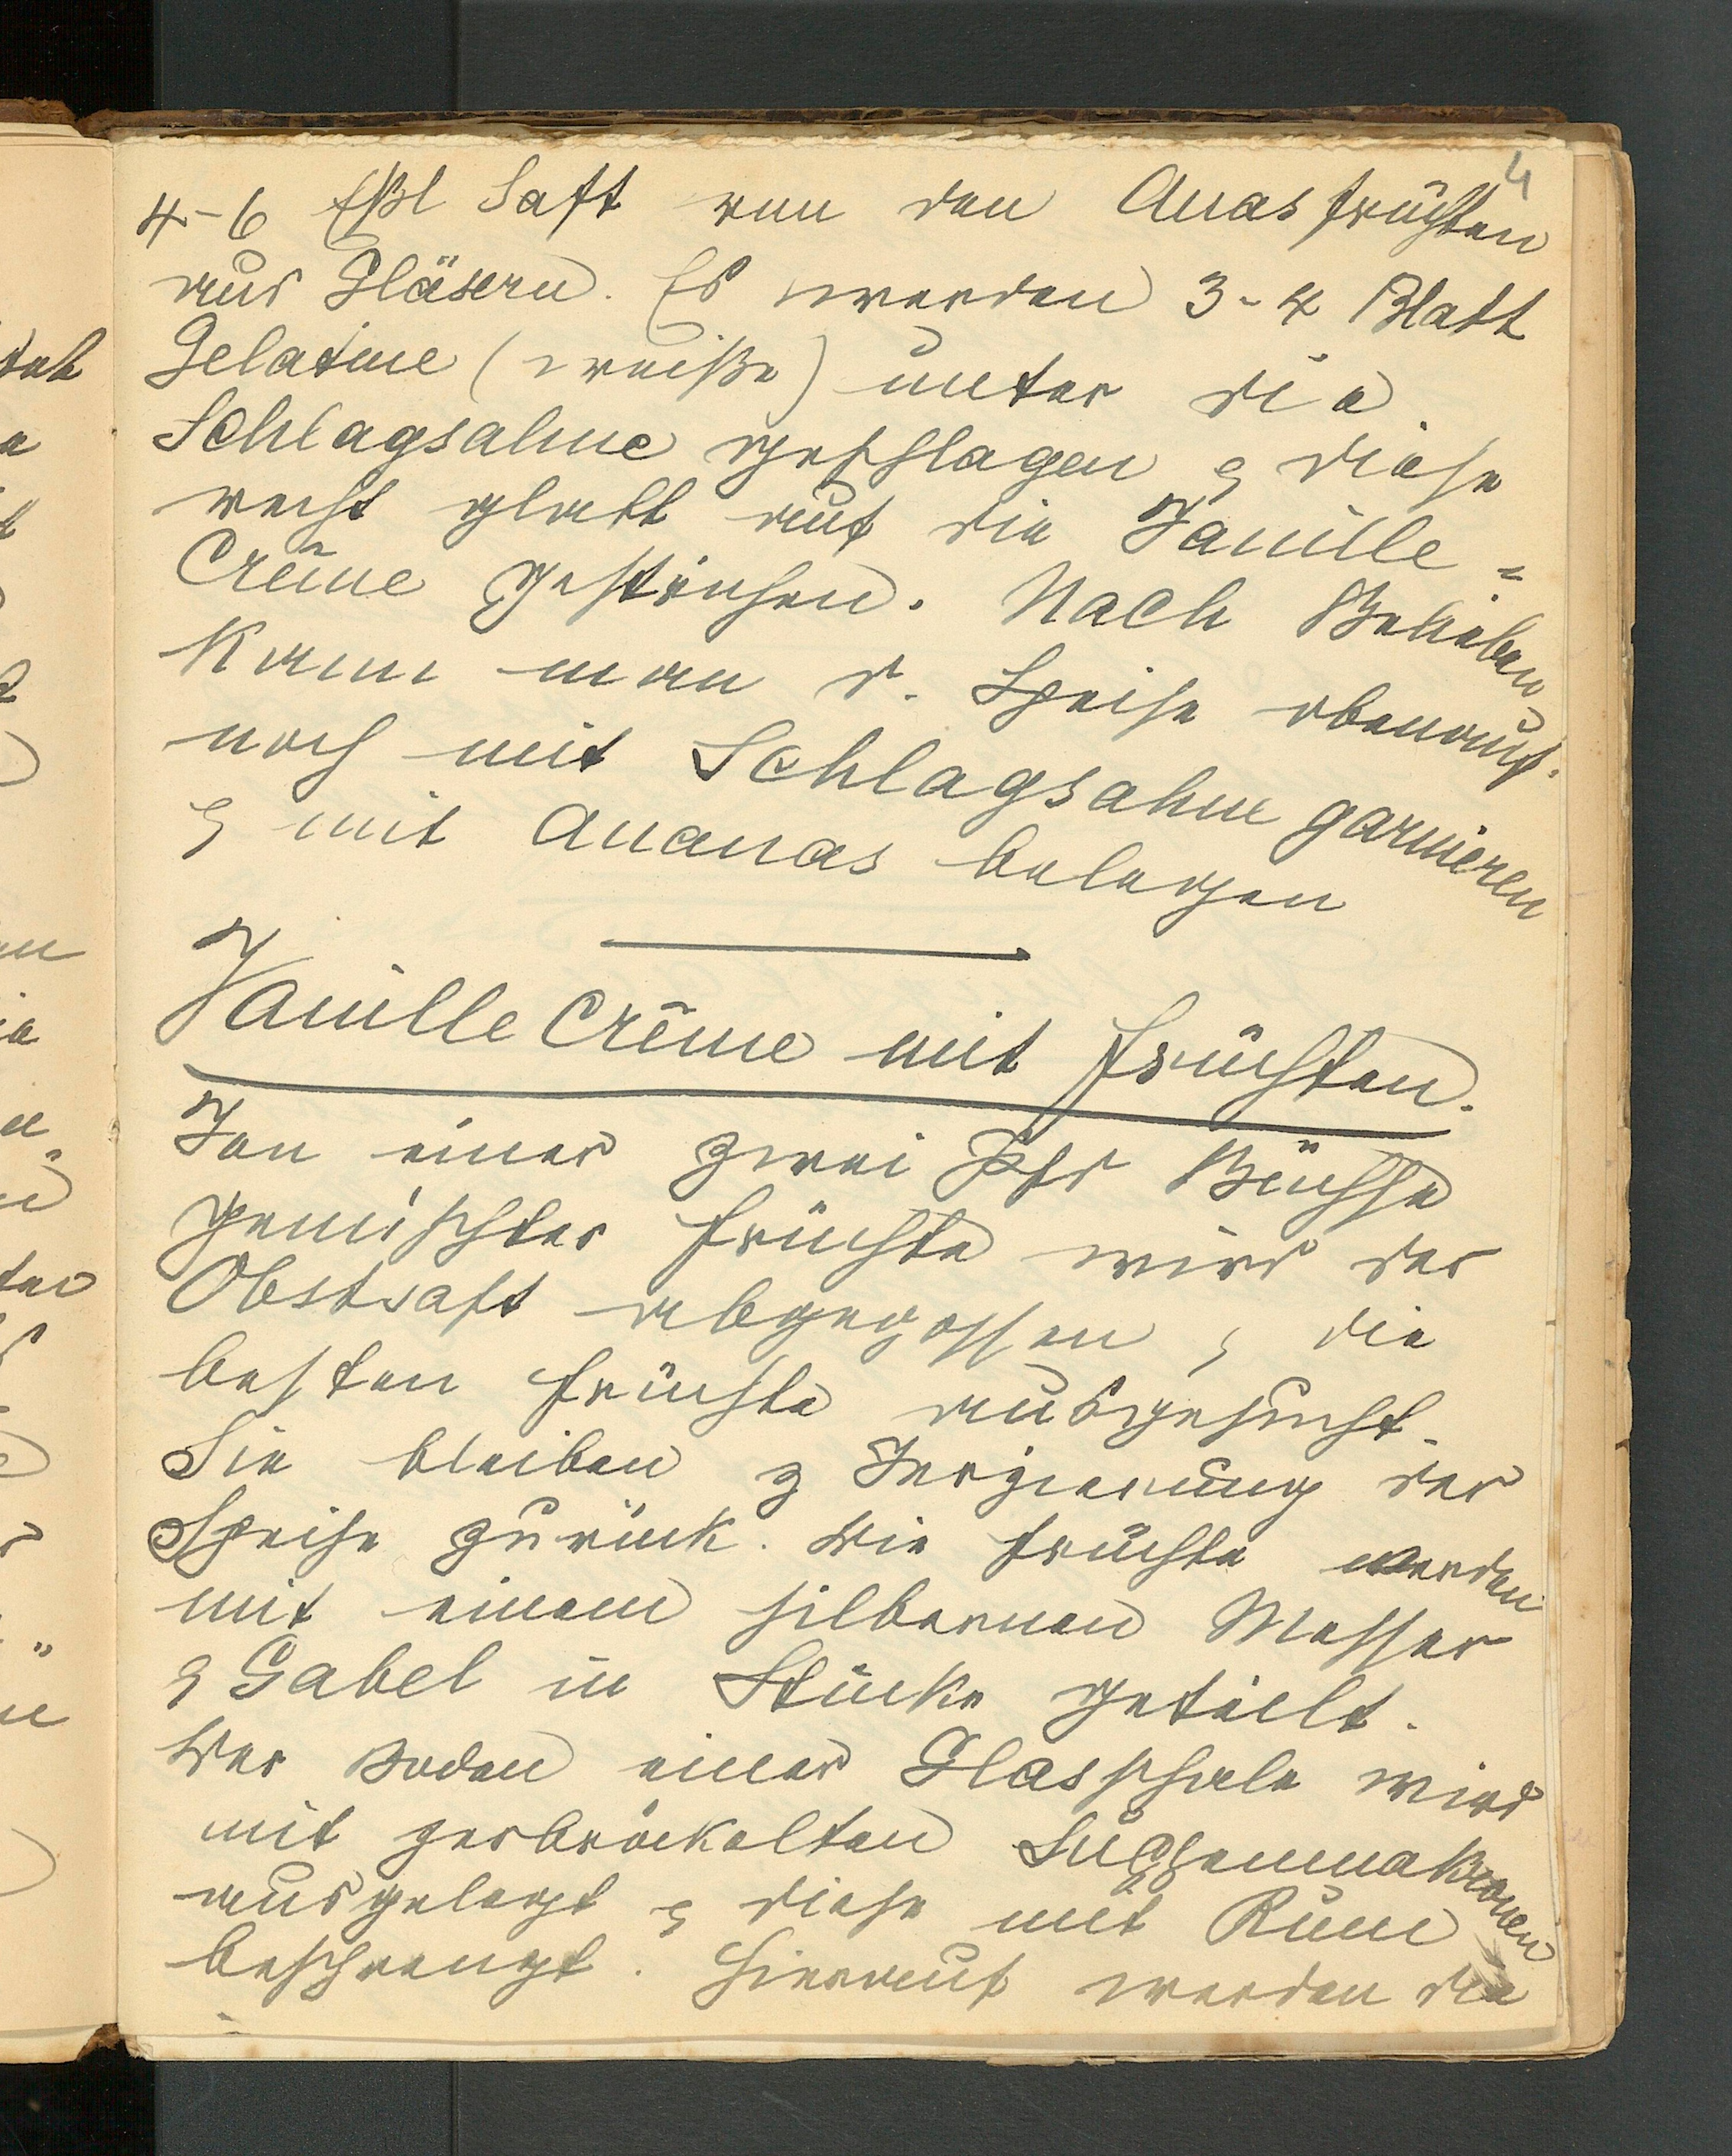 4
4-6 Eßl Saft von den Anasfrüchten
aus Gläsern. Es werden 3-4 Blatt
Gelatine (weiße) unter die
Schlagsahne geschlagen & diese
recht glatt auf die Vanille=
Crême gestrichen. Nach Belieben
kann man d. Speise obenauf.
noch mit Schlagsahne garnieren
& mit Ananas belegen
Vanille Crême mit Früchten.
Von einer zwei Pfd Büchse
gemischter Früchte wird der
Obstsaft abgegossen & die
besten Früchte ausgesucht.
Sie bleiben z Verzierung der
Speise zurück. Die Früchte werden
mit einem silbernen Messer
& Gabel in Stücke geteilt.
Der Boden einer Glasschale wird
mit zerbröckelten
ausgelegt & diese mit Rum
besprengt. Hierauf werden die